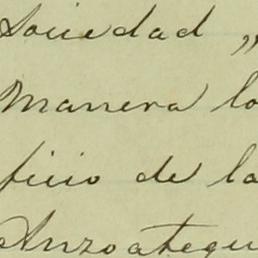 Sociedad „
manera lo
ficio de la
Anzoategui